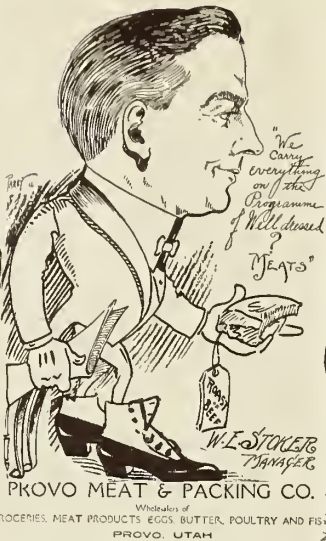 "We
carry
everything
on the
Programme
of Well dressed
?
MEATS"
ROAST
BEEF
W.E. STOKER
MANAGER
PROVO MEAT & PACKING CO.
Wholesalers of
ROCERIES, MEAT PRODUCTS EGGS, BUTTER, POULTRY AND FIS
PROVO, UTAH